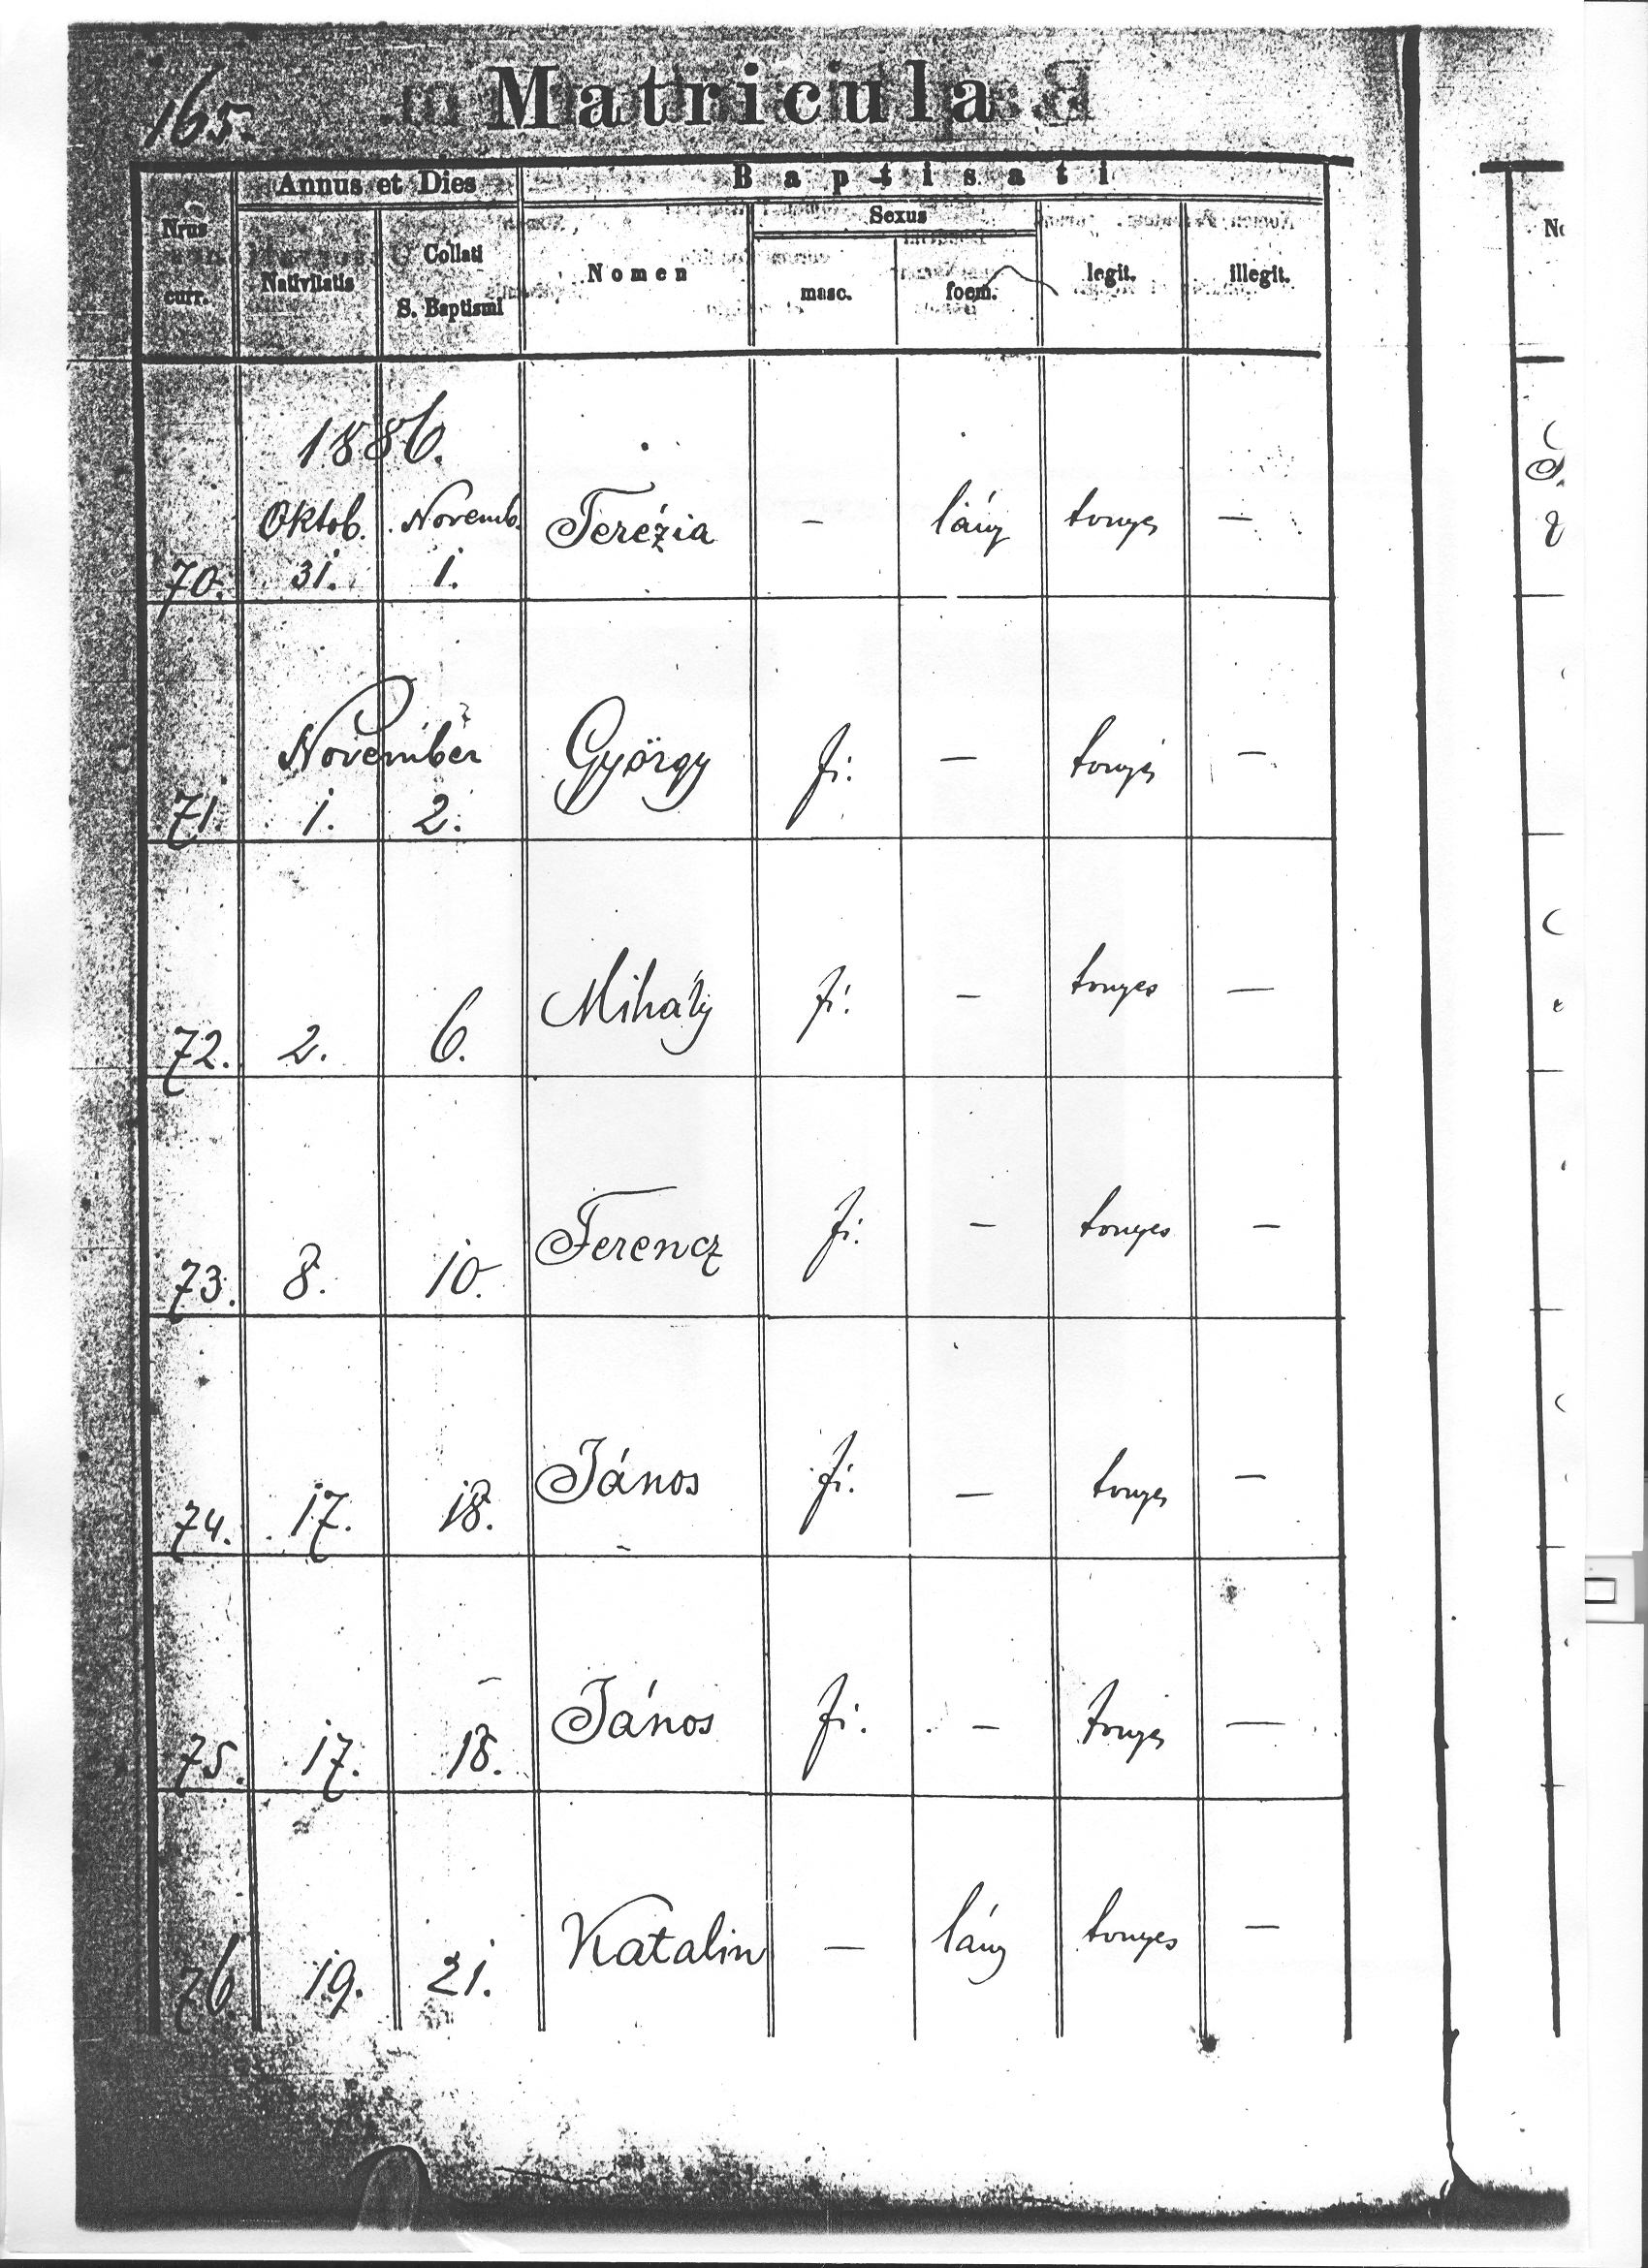 165.
Matricula
Annus et Dies
Baptisati
Nrus
curr.
Nativitatis
Collati
S. Baptismi
Nomen
Sexus
masc.
foem.
legit.
illegit.
1886.
Oktob. Novemb. Terézia – lány –
70. 31. 1.
November György fi. – –
71. 1. 2.
Mihály fi. – tonyes —
72. 2. 6.
Ferencz fi. – tonyes –
73. 8. 10.
János fi. – –
74. 17. 18.
János fi. – —
75. 17. 18.
Katalin – lány tonyes –
76. 19. 21.